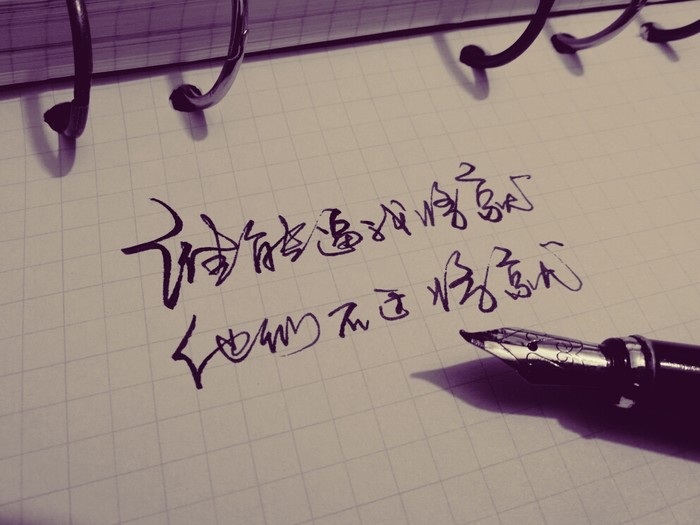 谁能逼我将就
他们不过将就